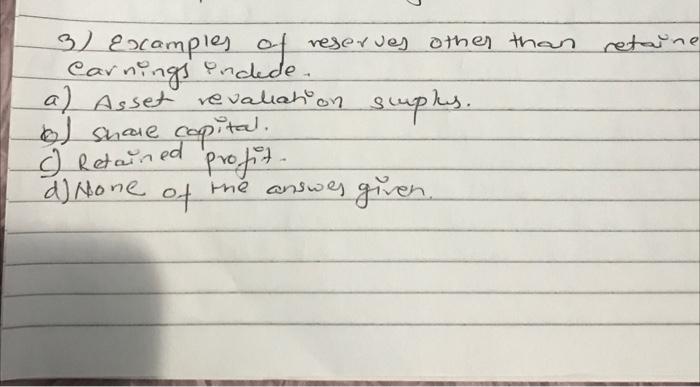 3) Examples of reserves other than retaine
earnings include.
a) Asset revaluation surplus.
b) share capital.
c) Retained profit.
d) None of the answer given.